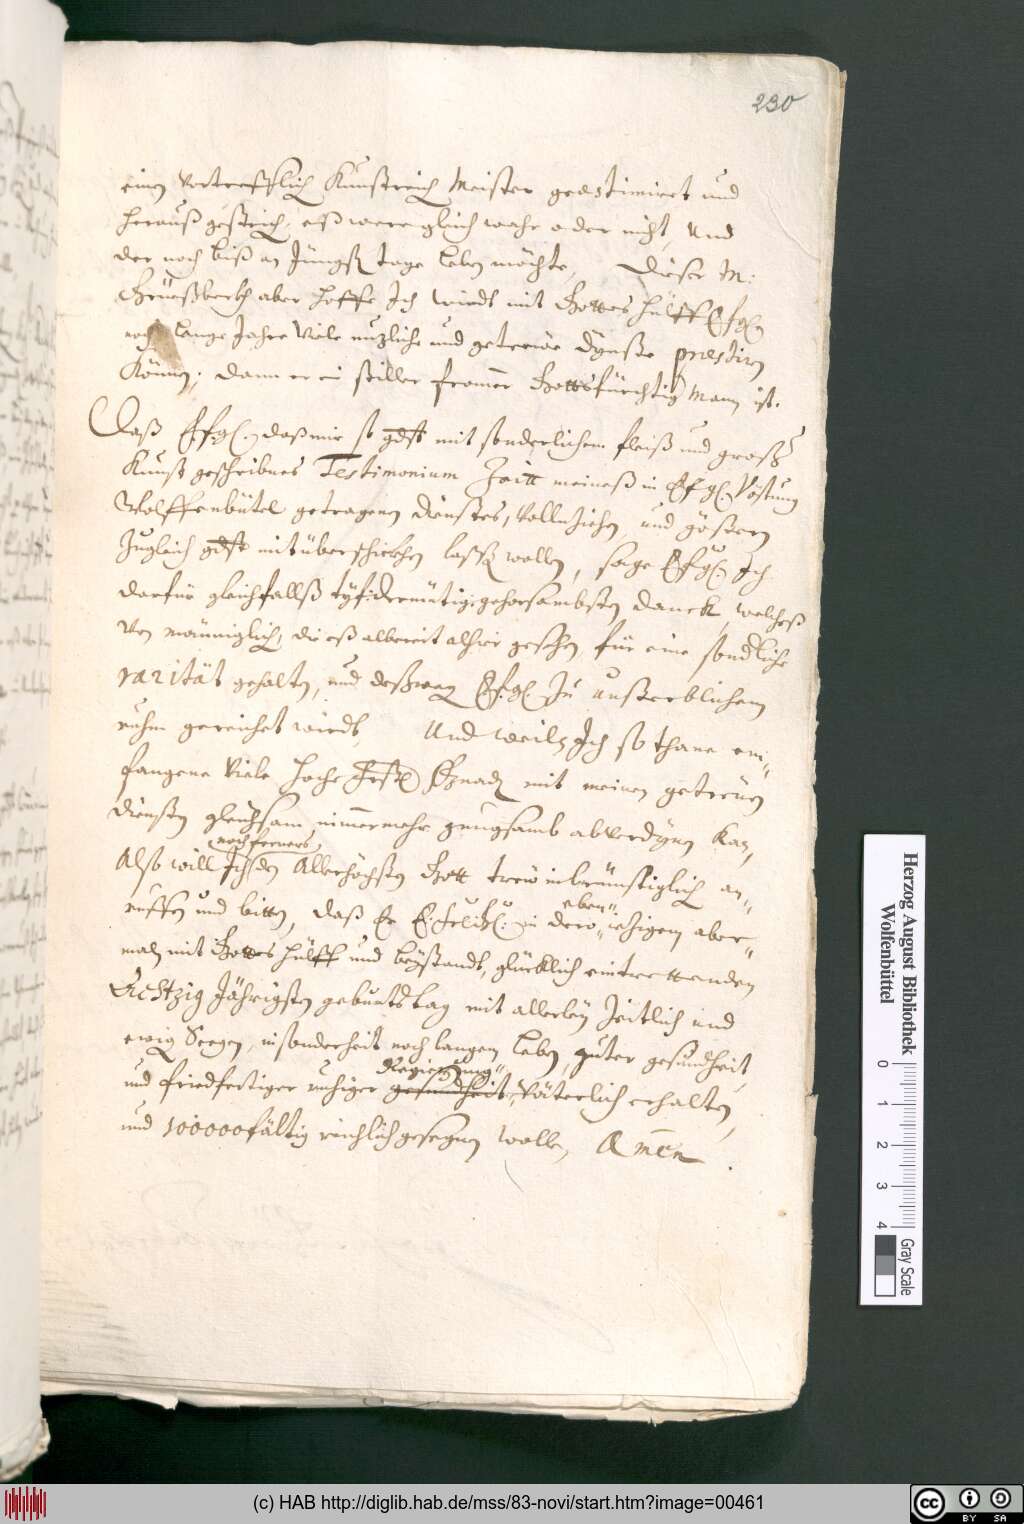 230
einen Vortrefflich Kunstreich Meister geæstimiert und
herauß gestrich, eß were gleich wahr oder nicht, Und
der noch biß an Jüngst tage leben möchte, Dieser M:
aber hoffe Ich wirdt mit Gottes hülff EfgL.
noch lange Jahre Viele nuzliche und getrewe dynste præstirn
Können; dann er ein stiller fromer Gottsfürchtig Mann ist.
Daß EfgL. daß mir so gdst mit sonderlichem fleiß und groß
Kunst geschribnes Testimonium Zeitt meineß in EfgL. Vöstung
Wolffenbütel getragenen dienstes, Vollnziehen, und gestern
Zugleich gdst mit überschickhen lassen wollen, sage EfgL. Ich
darfür gleichfallß demütig gehorsambsten danck, welcheß
Von männiglich, die eß albereit alhier gesehen, für eine sondliche
rarität gehalten, und deßweg EfgL. Zu unsterblichem
ruhm gereichet wirdt, Und weiln Ich so thane em-
fangene Viele hoche Gnadn mit meinen getreüen
diensten gleichsam nimmermehr gnugsamb abVerdynen Kan,
noch ferners
Also will Ich den Allerhöchsten Gott trew inbrünstiglich an-
eben-
ruffen und bitten, daß Er in dero iehigem aber-
maln mit Gottes hülff und beystandt, glücklich eintrettenden
Achtzig Jährigsten geburtstag mit allerley Zeitlich und
ewig Seegen, in sonderheit noch langem leben, guter gesundheit
Regierung
und friedfertiger ruhiger gesundheit, Väterlich erhalten,
und 100000fältig reichlich gesegnen wolle, Amen.
Herzog August Bibliothek
Wolfenbüttel
0 1 2 3 4
Gray Scale
(c) HAB http://diglib.hab.de/mss/83-novi/start.htm?image=00461
CC BY SA